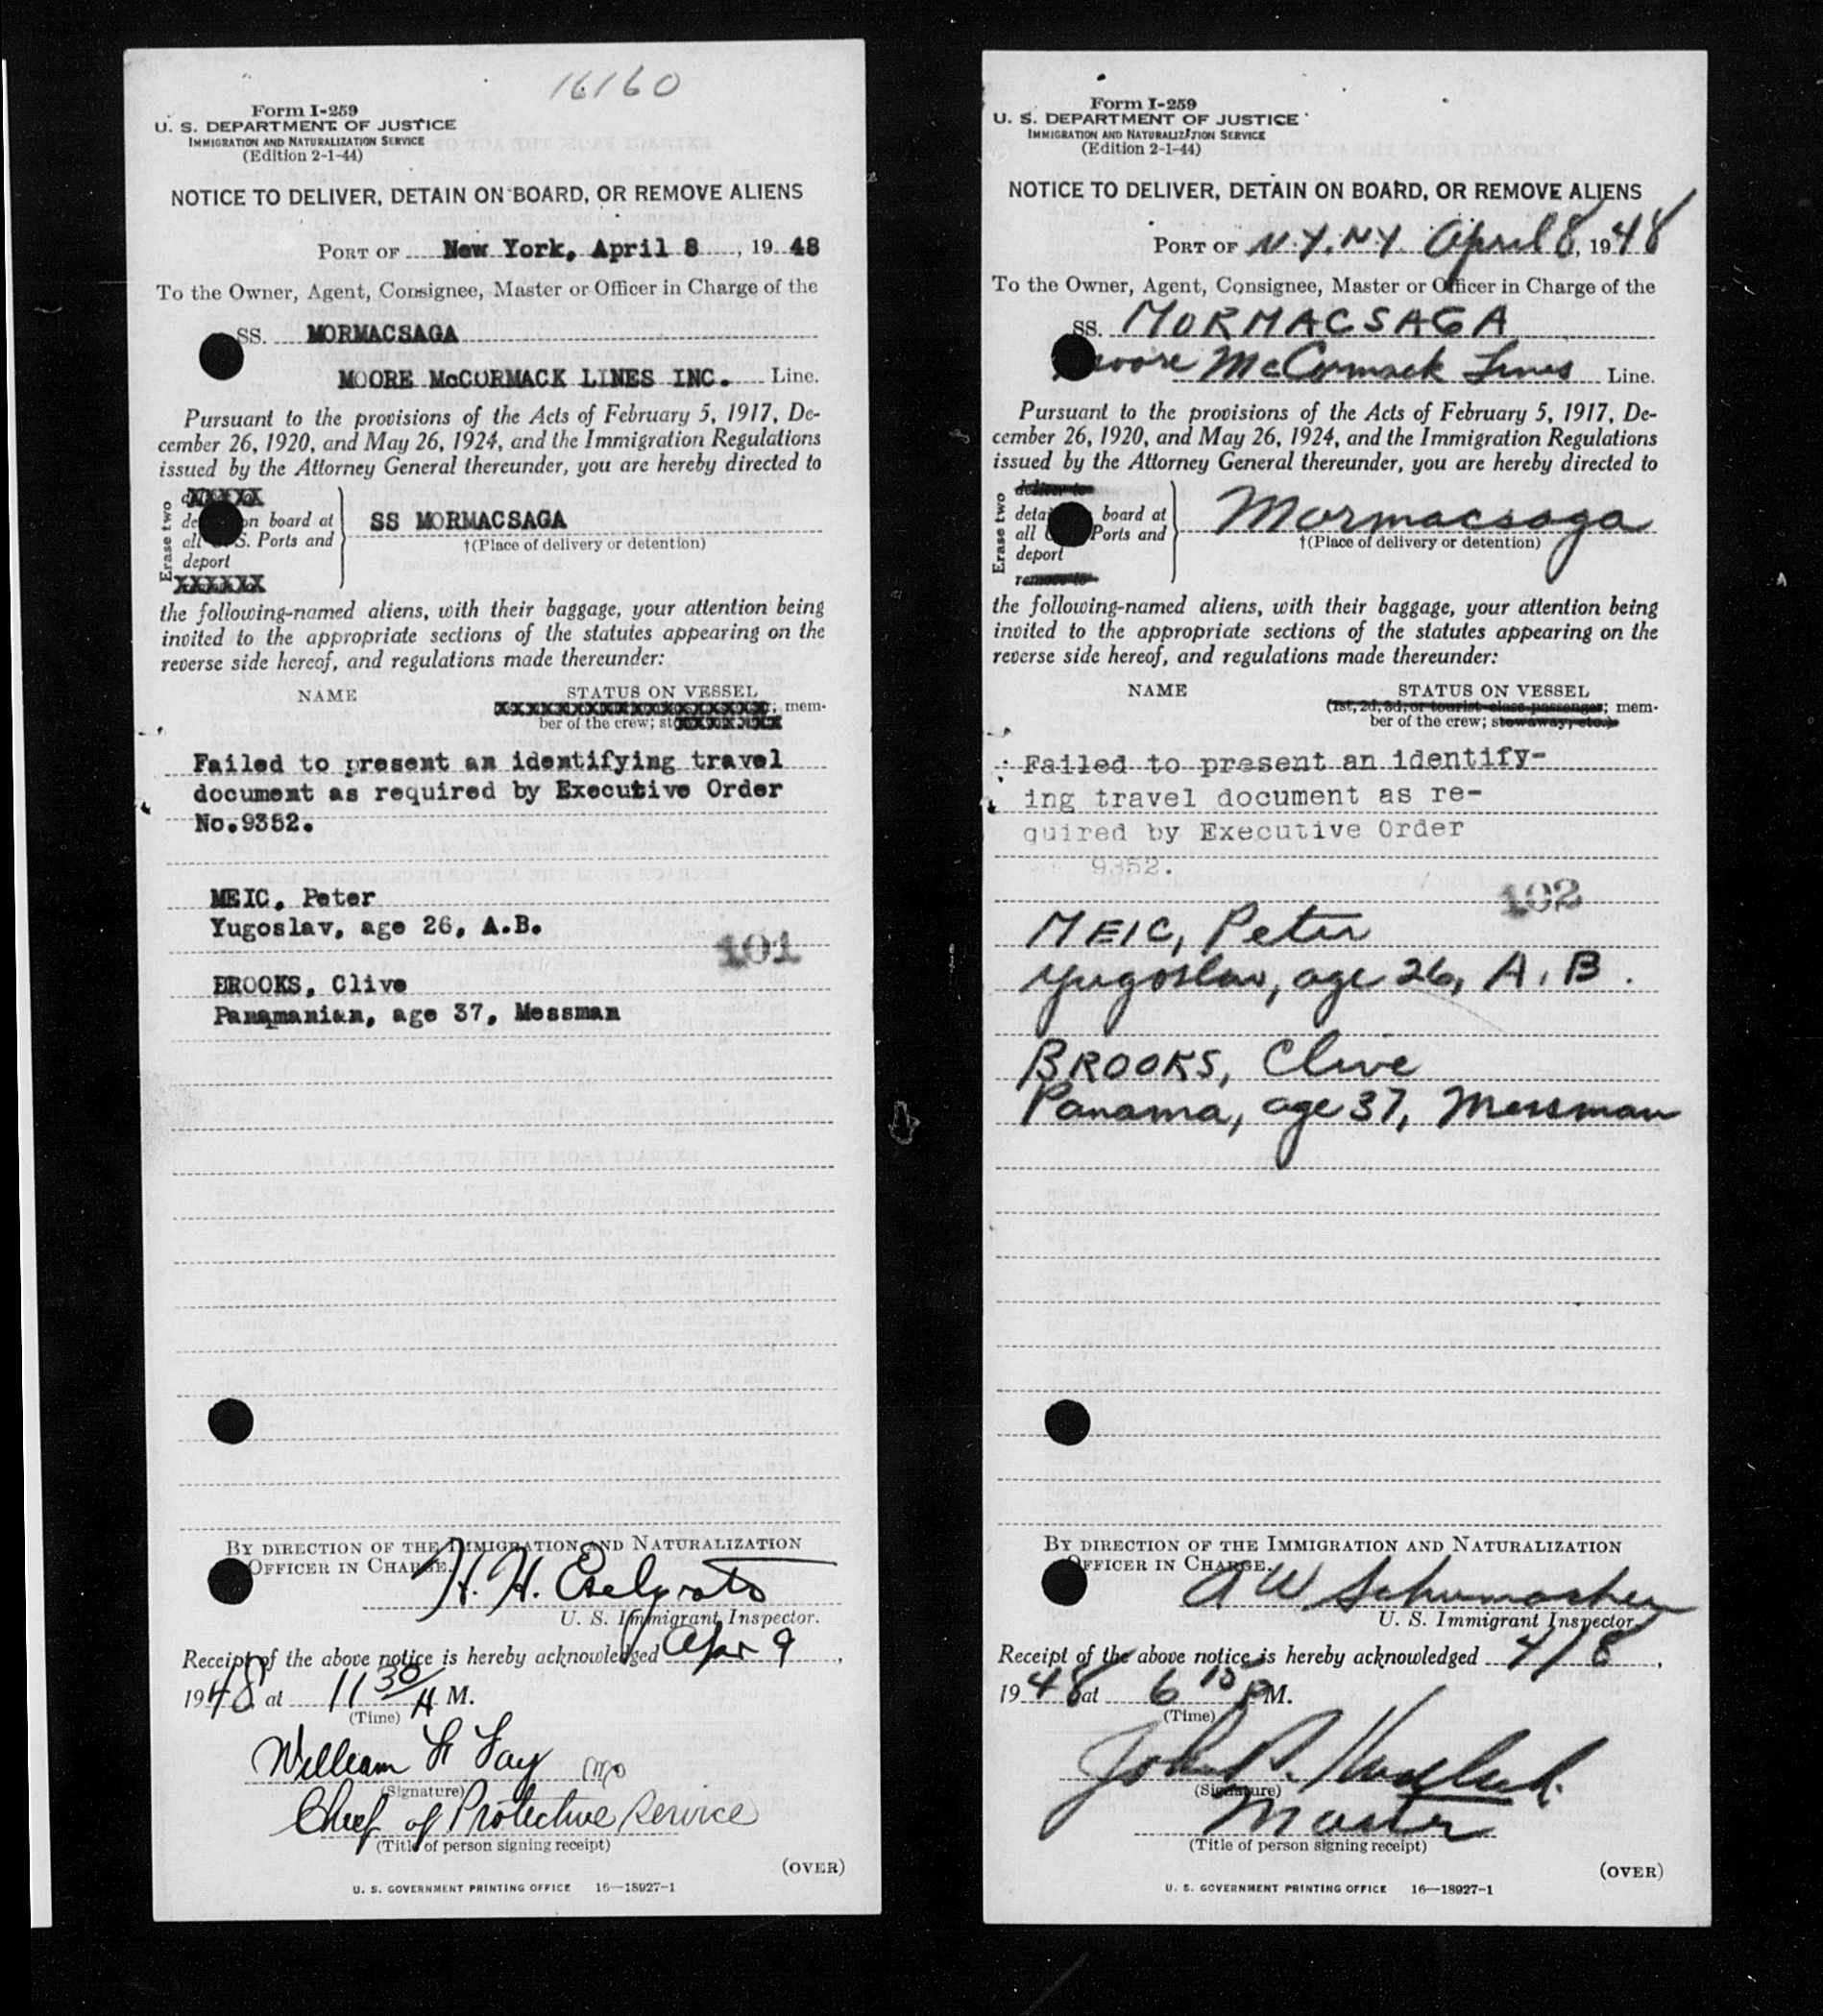 16160
Form I-259
U. S. DEPARTMENT OF JUSTICE
IMMIGRATION AND NATURALIZATION SERVICE
(Edition 2-1-44)
NOTICE TO DELIVER, DETAIN ON BOARD, OR REMOVE ALIENS
PORT OF New York, April 8, 19 48
To the Owner, Agent, Consignee, Master or Officer in Charge of the
SS. MORMACSAGA
MOORE McCORMACK LINES INC. Line.
Pursuant to the provisions of the Acts of February 5, 1917, De-
cember 26, 1920, and May 26, 1924, and the Immigration Regulations
issued by the Attorney General thereunder, you are hereby directed to
Erase two
XXXXX
on board at
all S. Ports and
deport
XXXXXX
SS MORMACSAGA
†(Place of delivery or detention)
the following-named aliens, with their baggage, your attention being
invited to the appropriate sections of the statutes appearing on the
reverse side hereof, and regulations made thereunder:
NAME STATUS ON VESSEL
mem-
ber of the crew;
Failed to present an identifying travel
document as required by Executive Order
No.9352.
MEIC, Peter
Yugoslav, age 26, A.B.
101
BROOKS, Clive
Panamanian, age 37, Messman
BY DIRECTION OF THE IMMIGRATION AND NATURALIZATION
OFFICER IN CHARGE.
H. H.
U. S. Immigrant Inspector.
Receipt of the above notice is hereby acknowledged Apr 9,
1948 at 11 30 A M.
(Time)
William H Fay
(Signature)
Chief of Protective Service
(Title of person signing receipt)
(OVER)
U. S. GOVERNMENT PRINTING OFFICE 16—18927-1
Form I-259
U. S. DEPARTMENT OF JUSTICE
IMMIGRATION AND NATURALIZATION SERVICE
(Edition 2-1-44)
NOTICE TO DELIVER, DETAIN ON BOARD, OR REMOVE ALIENS
PORT OF N.Y. NY April 8, 1948
To the Owner, Agent, Consignee, Master or Officer in Charge of the
SS. MORMACSAGA
Moore McCormack Lines Line.
Pursuant to the provisions of the Acts of February 5, 1917, De-
cember 26, 1920, and May 26, 1924, and the Immigration Regulations
issued by the Attorney General thereunder, you are hereby directed to
Erase two
deliver to
board at
all Ports and
deport
remove to
Mormacsaga
†(Place of delivery or detention)
the following-named aliens, with their baggage, your attention being
invited to the appropriate sections of the statutes appearing on the
reverse side hereof, and regulations made thereunder:
NAME STATUS ON VESSEL
(1st, 2d, 3d, or tourist class passenger; mem-
ber of the crew; stowaway, etc.)
Failed to present an identify-
ing travel document as re-
quired by Executive Order
9352.
102
MEIC, Peter
Yugoslav, age 26, A.B.
BROOKS, Clive
Panama, age 37, Messman
BY DIRECTION OF THE IMMIGRATION AND NATURALIZATION
OFFICER IN CHARGE.
A W Schumacher
U. S. Immigrant Inspector.
Receipt of the above notice is hereby acknowledged 4/8,
1948 at 6 15 P M.
(Time)
John P.
(Signature)
Master
(Title of person signing receipt)
(OVER)
U. S. GOVERNMENT PRINTING OFFICE 16—18927-1